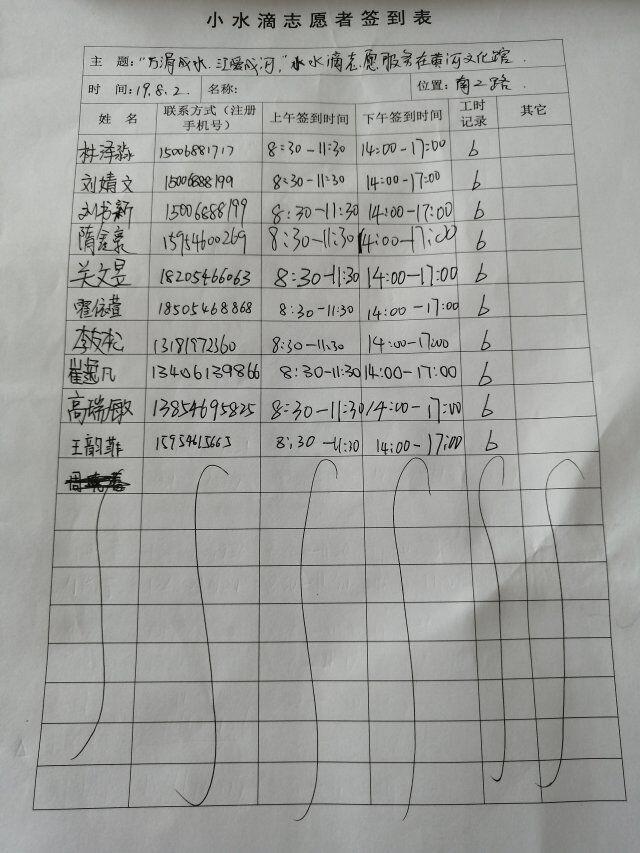 小水滴志愿者签到表
主 题："万涓成水,汇爱成河,"小水滴志愿服务在黄河文化馆.
时 间:19.8.2. 名称: 位置:南二路.
姓 名 联系方式（注册手机号） 上午签到时间 下午签到时间 工时记录 其它
林泽淼 15006881717 8:30-11:30 14:00-17:00 6
刘婧文 15006888199 8:30-11:30 14:00-17:00 6
刘书新 15006888199 8:30-11:30 14:00-17:00 6
隋鑫豪 15954600269 8:30-11:30 14:00-17:00 6
关文昱 18205466063 8:30-11:30 14:00-17:00 6
霍依萱 18505468868 8:30-11:30 14:00-17:00 6
李友松 13181972360 8:30-11:30 14:00-17:00 6
崔凡 13406139866 8:30-11:30 14:00-17:00 6
高瑞敏 13854695825 8:30-11:30 14:00-17:00 6
王韵菲 15954615665 8:30-11:30 14:00-17:00 6